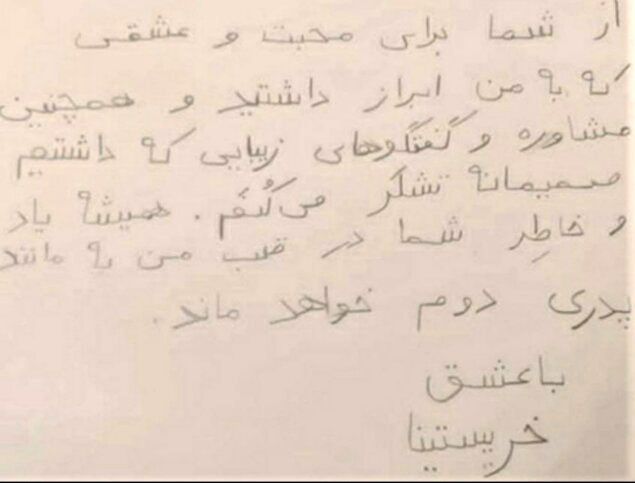 از شما برای محبت و عشقی
که به من ابراز داشتید و همچنین
مشاوره و گفتگوهای زیبایی که داشتیم
صمیمانه تشکر می‌کُنَم. همیشه یاد
و خاطِر شما در قلب من به مانند
پدری دوم خواهد ماند.
با عشق
خریستینا